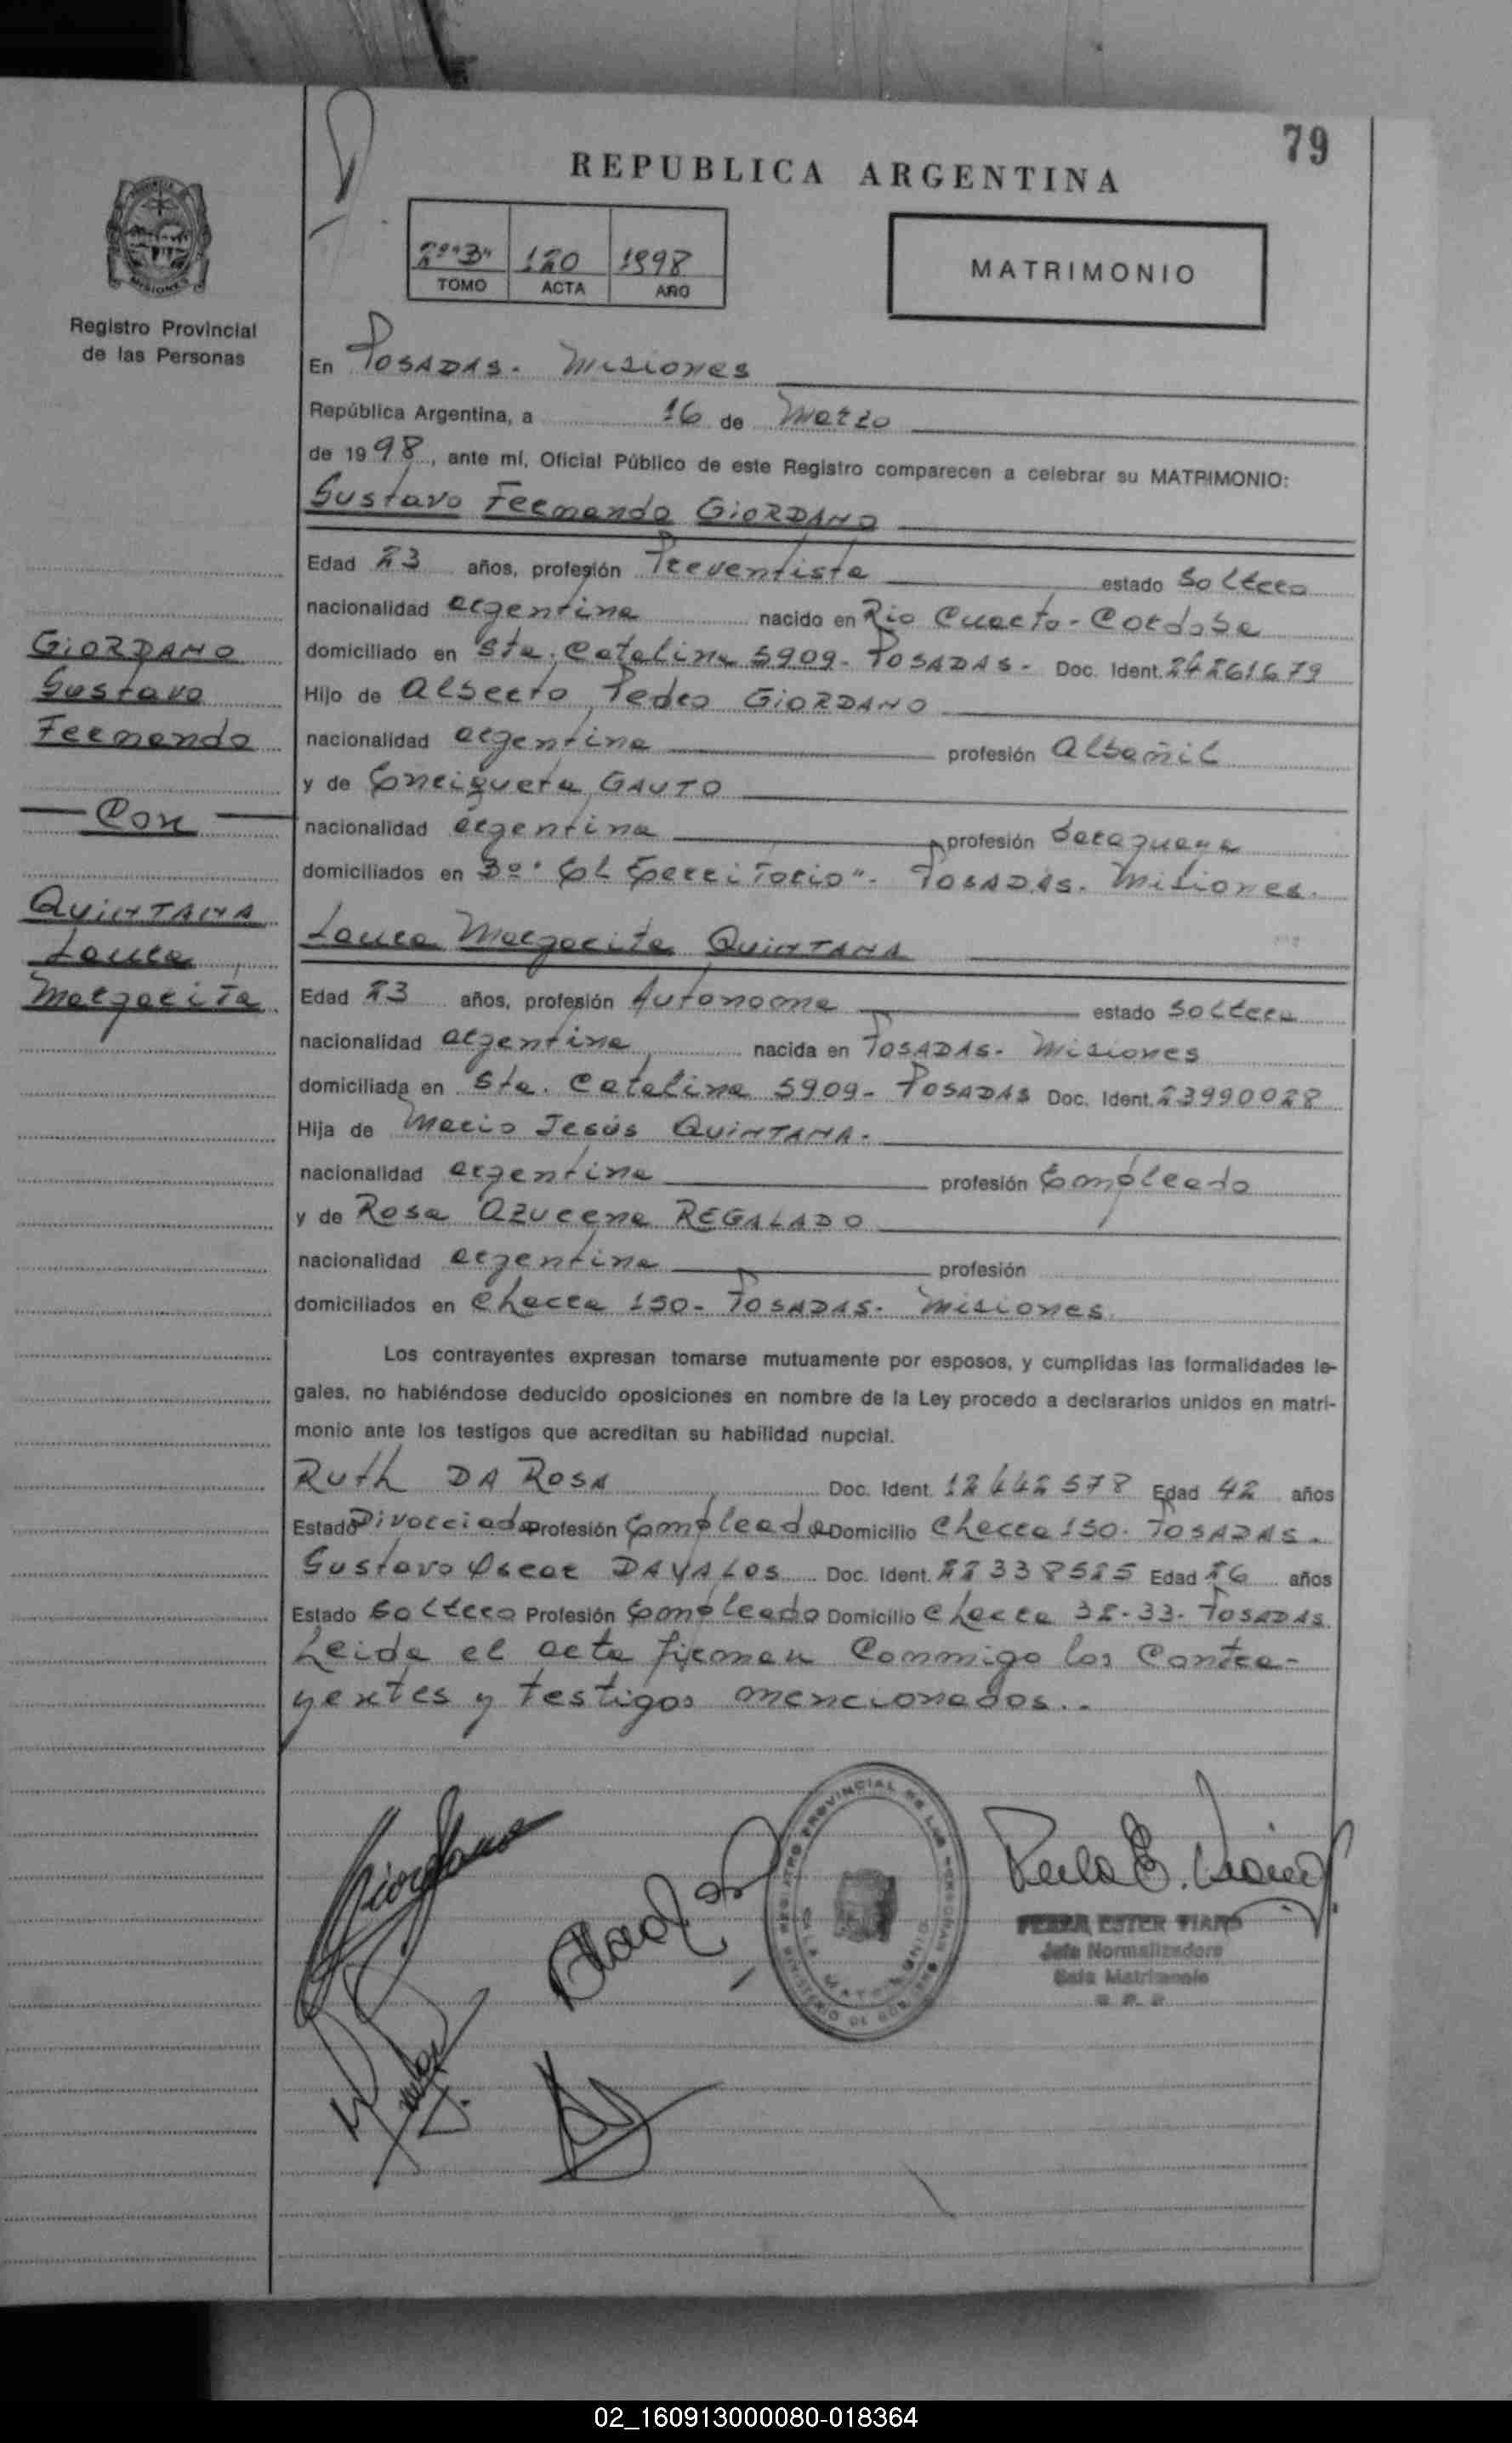 79
REPUBLICA ARGENTINA
2º "B" 120 1998
TOMO ACTA AÑO
MATRIMONIO
Registro Provincial
de las Personas
En POSADAS - Misiones
República Argentina, a 16 de Marzo
de 1998, ante mí, Oficial Público de este Registro comparecen a celebrar su MATRIMONIO:
Gustavo Fernando GiORDANO
Edad 23 años, profesión Preventista estado Soltero
nacionalidad argentina nacido en Rio Cuarto - Cordoba
domiciliado en Sta. Catalina 5909 - POSADAS - Doc. Ident. 24261679
Hijo de Alberto Pedro GiORDANO
nacionalidad argentina profesión Albañil
y de Enriqueta GAUTO
nacionalidad argentina profesión
domiciliados en Bº "El Territorio" - POSADAS - Misiones.
Laura Margarita QUINTANA
Edad 23 años, profesión Autonoma estado Soltera
nacionalidad argentina nacida en POSADAS - Misiones
domiciliada en Sta. Catalina 5909 - POSADAS Doc. Ident. 23990028
Hija de Mario Jesús QUINTANA -
nacionalidad argentina profesión Empleado
y de Rosa Azucena REGALADO
nacionalidad argentina profesión
domiciliados en Chacra 150 - POSADAS - Misiones.
Los contrayentes expresan tomarse mutuamente por esposos, y cumplidas las formalidades le-
gales, no habiéndose deducido oposiciones en nombre de la Ley procedo a declararlos unidos en matri-
monio ante los testigos que acreditan su habilidad nupcial.
Ruth DA ROSA Doc. Ident. 12442578 Edad 42 años
Estado Divorciada Profesión Empleada Domicilio Chacra 150 - POSADAS -
Gustavo Oscar DAVALOS Doc. Ident. 22338525 Edad 26 años
Estado Soltero Profesión Empleado Domicilio Chacra 32-33 - POSADAS.
Leida el acta firman Conmigo los Contra-
yentes y testigos mencionados..
GiORDANO
Gustavo
Fernando
— Con —
QUINTANA
Laura
Margarita
Giordano
REGISTRO PROVINCIAL DE LAS PERSONAS
SALA MATRIMONIO
MINISTERIO DE GOB.
ESTER
Jefe Normalizadora
Sala Matrimonio
R. P. P.
02_160913000080-018364